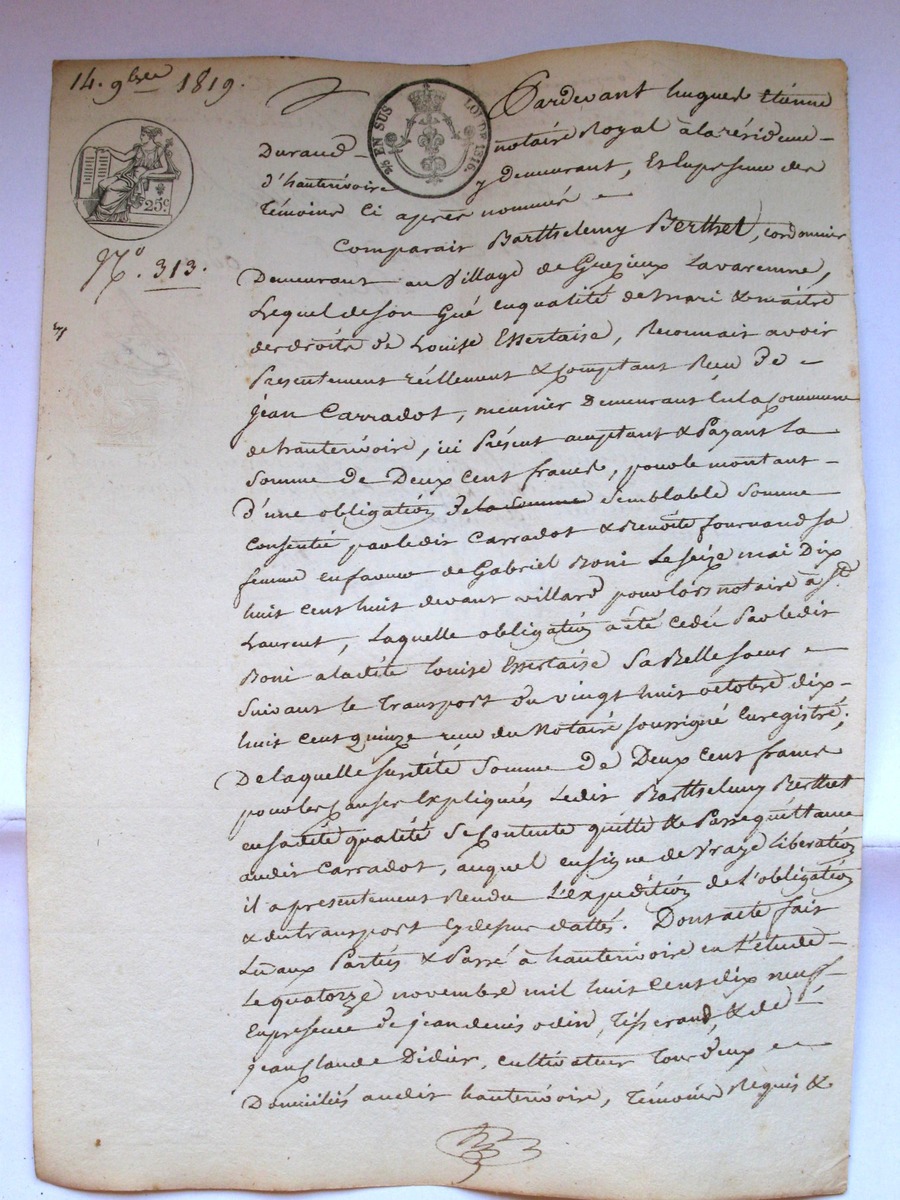 14. 9bre 1819.
Pardevant hugues Etienne
25 EN SUS LOI DE 1816.
Durand notaire Royal à la résidence
d'hauterivoire y demeurant, Et en presence des
Témoins Ci après nommés
25c.
N.o 313.
Comparait Barthelemy Berthet, cordonnier
Demeurant au Village de Lavarenne,
Lequel de son Gré en qualité de mari & maitre
des droits de Louise Essertaise, Reconnait avoir
Presentement réellement & comptant Reçu de
jean Carradot, meunier Demeurant en la Commune
de hauterivoire, ici Présent acceptant & Payant la
Somme de Deux Cent francs, pour le montant
d'une obligation de la Somme Semblable Somme
Consentie par ledit Carradot & Benoite fournand sa
femme en faveur de Gabriel Boni Le Seize mai Dix
huit Cent huit devant villard pour lors notaire à St.
Laurent, Laquelle obligation a été Cedée Par ledit
Boni a ladite Louise Essertaise Sa Belle Soeur
Suivant le Transport du vingt huit octobre dix
huit Cent quinze reçu du Notaire soussigné Enregistré;
De laquelle susdité Somme de Deux Cent francs
pour les Causes Expliquées Ledit Barthelemy Berthet
en sadité qualité Se Contente quitte & Passe quittance
audit Carradot, auquel en signe de Vraye libération
il a presentement Rendu L'expedition de l'obligation
& du transport Cy dessus dattés. Dont acte fait
Lu aux Parties & Passé à hauterivoire en l'étude
Le quatorze novembre mil huit Cent dix neuf
En presence de jean denis odin, Tisserand, & de
jean Claude Didier, cultivateur Tous deux
Domiciliés audit hauterivoire, Témoins Requis &